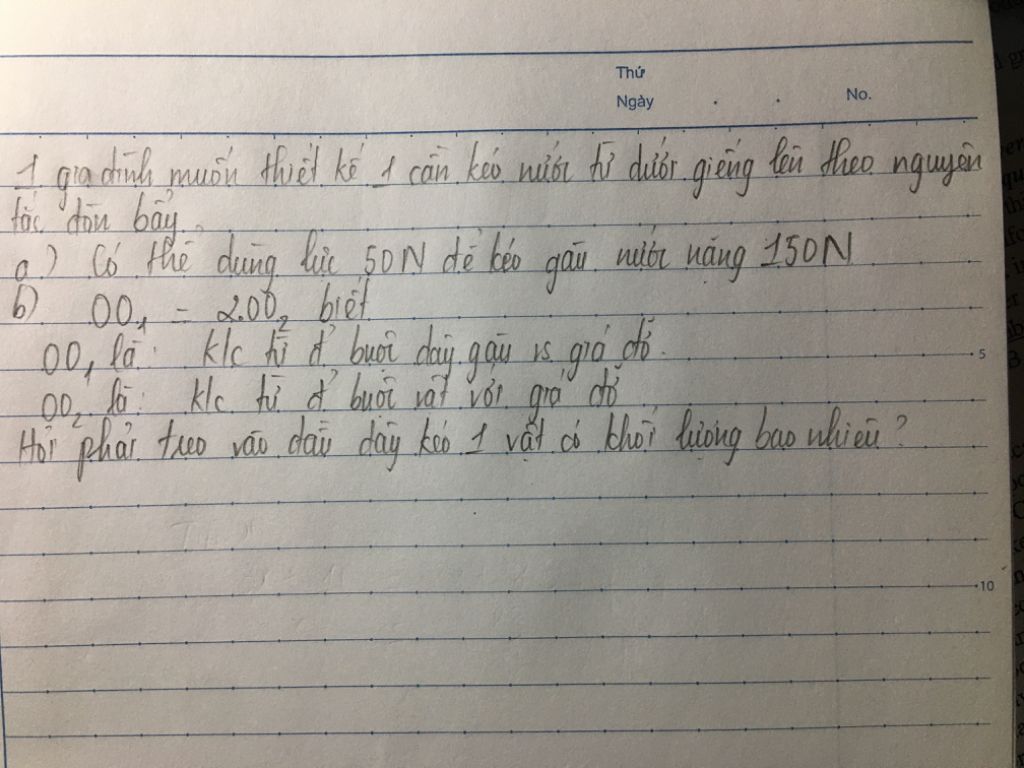 Thứ
Ngày . . No.
1 gia đình muốn thiết kế 1 cần kéo nước từ dưới giếng lên theo nguyên
tắc đòn bẩy.
a.) Có thể dùng lực 50N để kéo gầu nước nặng 150N
b) OO₁ = 2.OO₂ biết
OO₁ là: k/c từ đ' buộc dây gầu vs giá đỡ.
OO₂ là: k/c từ đ' buộc vật với giá đỡ
Hỏi phải treo vào đầu dây kéo 1 vật có khối lượng bao nhiêu?
5
10